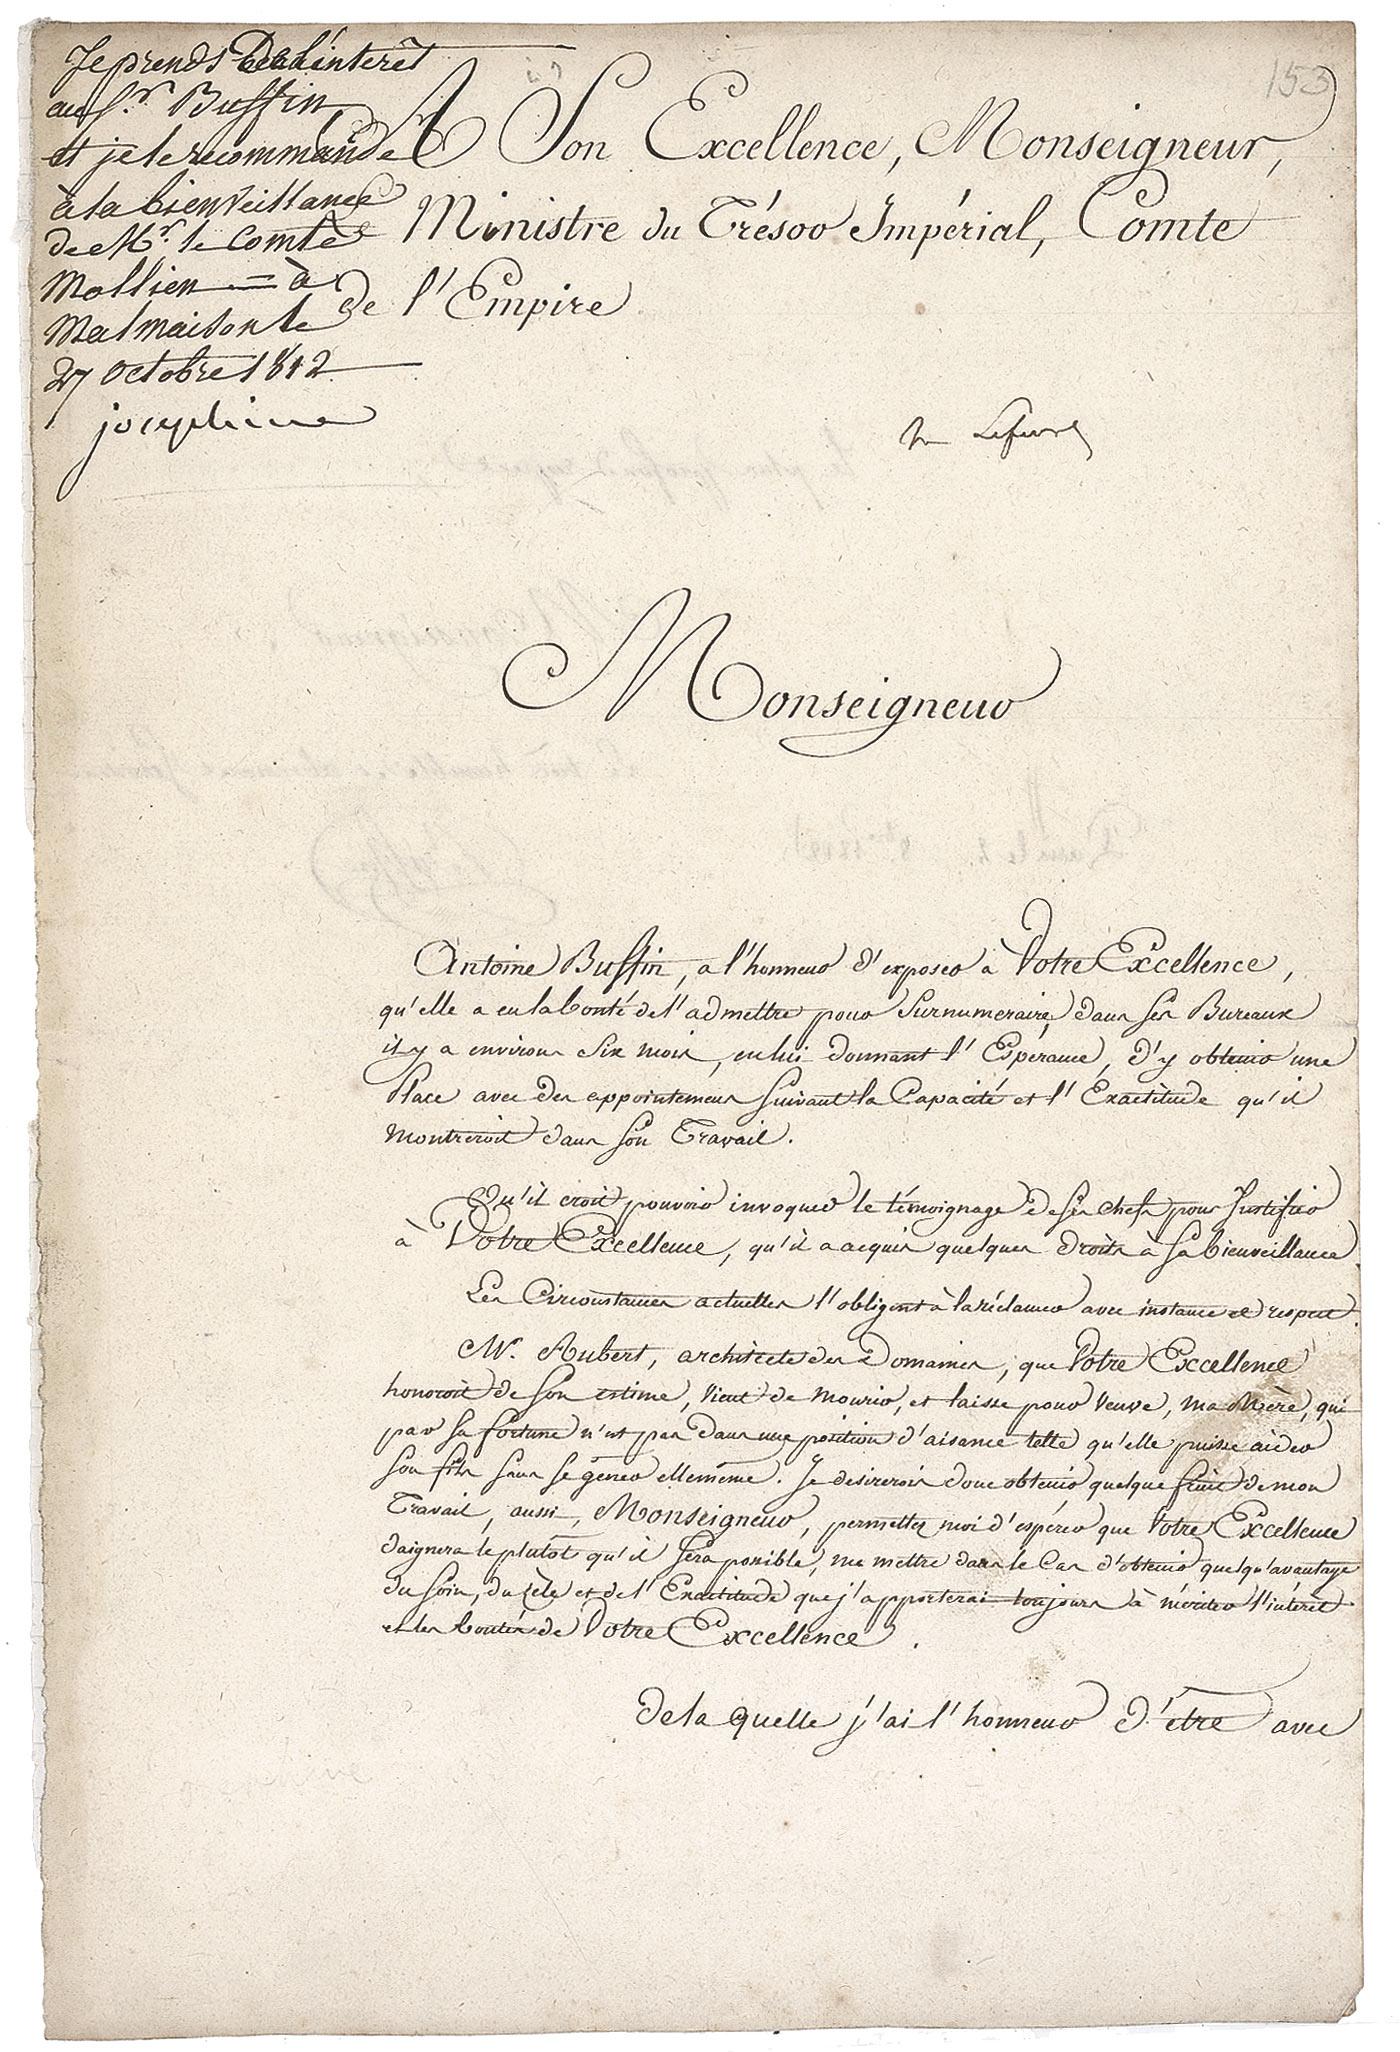 Je prends de l'interêt
au Sr. Buffin
et je le recommande
à la bienveillance
de Mr. le Comte
Mollien = à
Malmaison le
27 octobre 1812
josephine
153
A Son Excellence, Monseigneur,
Ministre du Trésor Impérial, Comte
de l'Empire
Lefevre
Monseigneur
Antoine Buffin, a l'honneur d'exposer à Votre Excellence,
qu'elle a eu la bonté de l'admettre pour Surnumeraire, dans ses Bureaux
il y a environ Six mois, en lui donnant l'Espérance, d'y obtenir une
Place avec des appointemens Suivant la Capacité et l'Exactitude qu'il
montreroit dans Son Travail.
Qu'il croit pouvoir invoquer le témoignage de Ses chefs pour Justifier
à Votre Excellence, qu'il a acquis quelques droits à Sa bienveillance
Les Circonstances actuelles l'obligent à la réclamer avec instance et respect.
Mr. Aubert, architecte des Domaines, que Votre Excellence
honoroit de Son estime, vient de mourir, et laisse pour veuve, ma Mère, qui
par Sa fortune n'est pas dans une position d'aisance telle qu'elle puisse aider
Son fils Sans Se gêner ellemême. Je desirerois donc obtenir quelque fruit de mon
Travail, aussi, Monseigneur, permettez moi d'espérer que Votre Excellence
daignera le plutôt qu'il Sera possible, me mettre dans le Cas d'obtenir quelqu'avantage
du Soin, du zèle et de l'Exactitude que j'apporterai toujours à mériter l'intérêt
et les bontés de Votre Excellence.
de la quelle j'ai l'honneur d'être avec